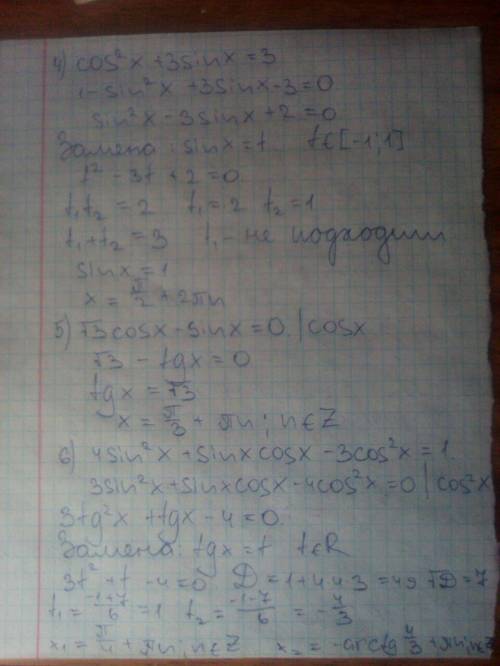 4) cos²x + 3sinx = 3
1 - sin²x + 3sinx - 3 = 0
sin²x - 3sinx + 2 = 0
Замена: sinx = t t ∈ [-1; 1]
t² - 3t + 2 = 0
t₁t₂ = 2 t₁ = 2 t₂ = 1
t₁ + t₂ = 3 t₁ - не подходит
sinx = 1
x = π/2 + 2πn
5) √3cosx - sinx = 0 | cosx
√3 - tgx = 0
tgx = √3
x = π/3 + πn; n ∈ Z
6) 4sin²x + sinxcosx - 3cos²x = 1
3sin²x + sinxcosx - 4cos²x = 0 | cos²x
3tg²x + tgx - 4 = 0
Замена: tgx = t t ∈ R
3t² + t - 4 = 0 D = 1 + 4·4·3 = 49 √D = 7
t₁ = (-1+7)/6 = 1 t₂ = (-1-7)/6 = -4/3
x₁ = π/4 + πn; n ∈ Z x₂ = -arctg 4/3 + πn; n ∈ Z